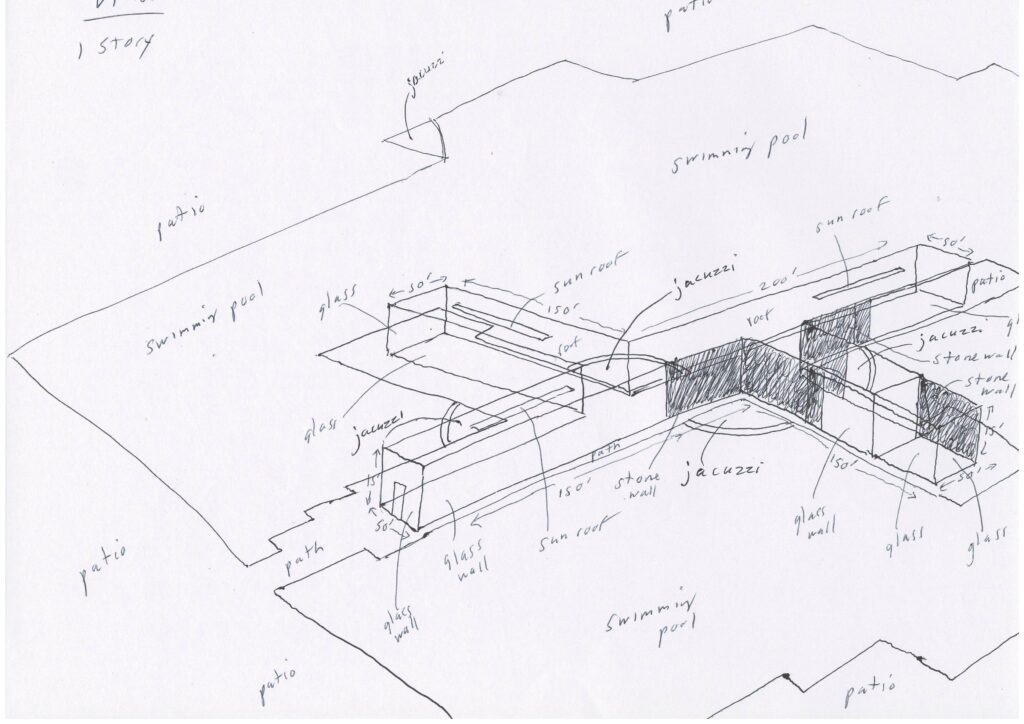 1 story
patio
jacuzzi
swimming pool
patio
sun roof
50'
swimming pool
glass
50'
150'
sun roof
jacuzzi
200'
patio
roof
roof
jacuzzi
stone wall
stone
wall
glass
jacuzzi
15'
15'
50'
path
150'
stone
wall
jacuzzi
150'
50'
sun roof
glass
wall
glass
wall
glass
glass
path
patio
glass
wall
swimming
pool
patio
patio